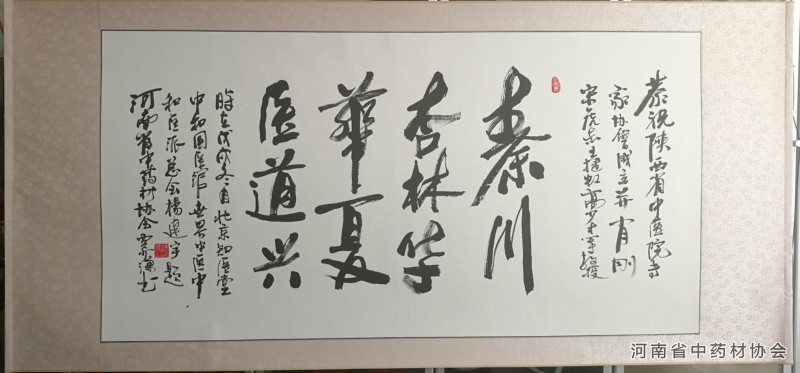 恭祝陕西省中医院专
家协会成立并肖刚
秦川
杏林华
华夏
医道兴
时在戊戌冬月北京知医堂
中和国医馆世界中医中
和医派总会杨建宇题
河南省中药材协会
河南省中药材协会